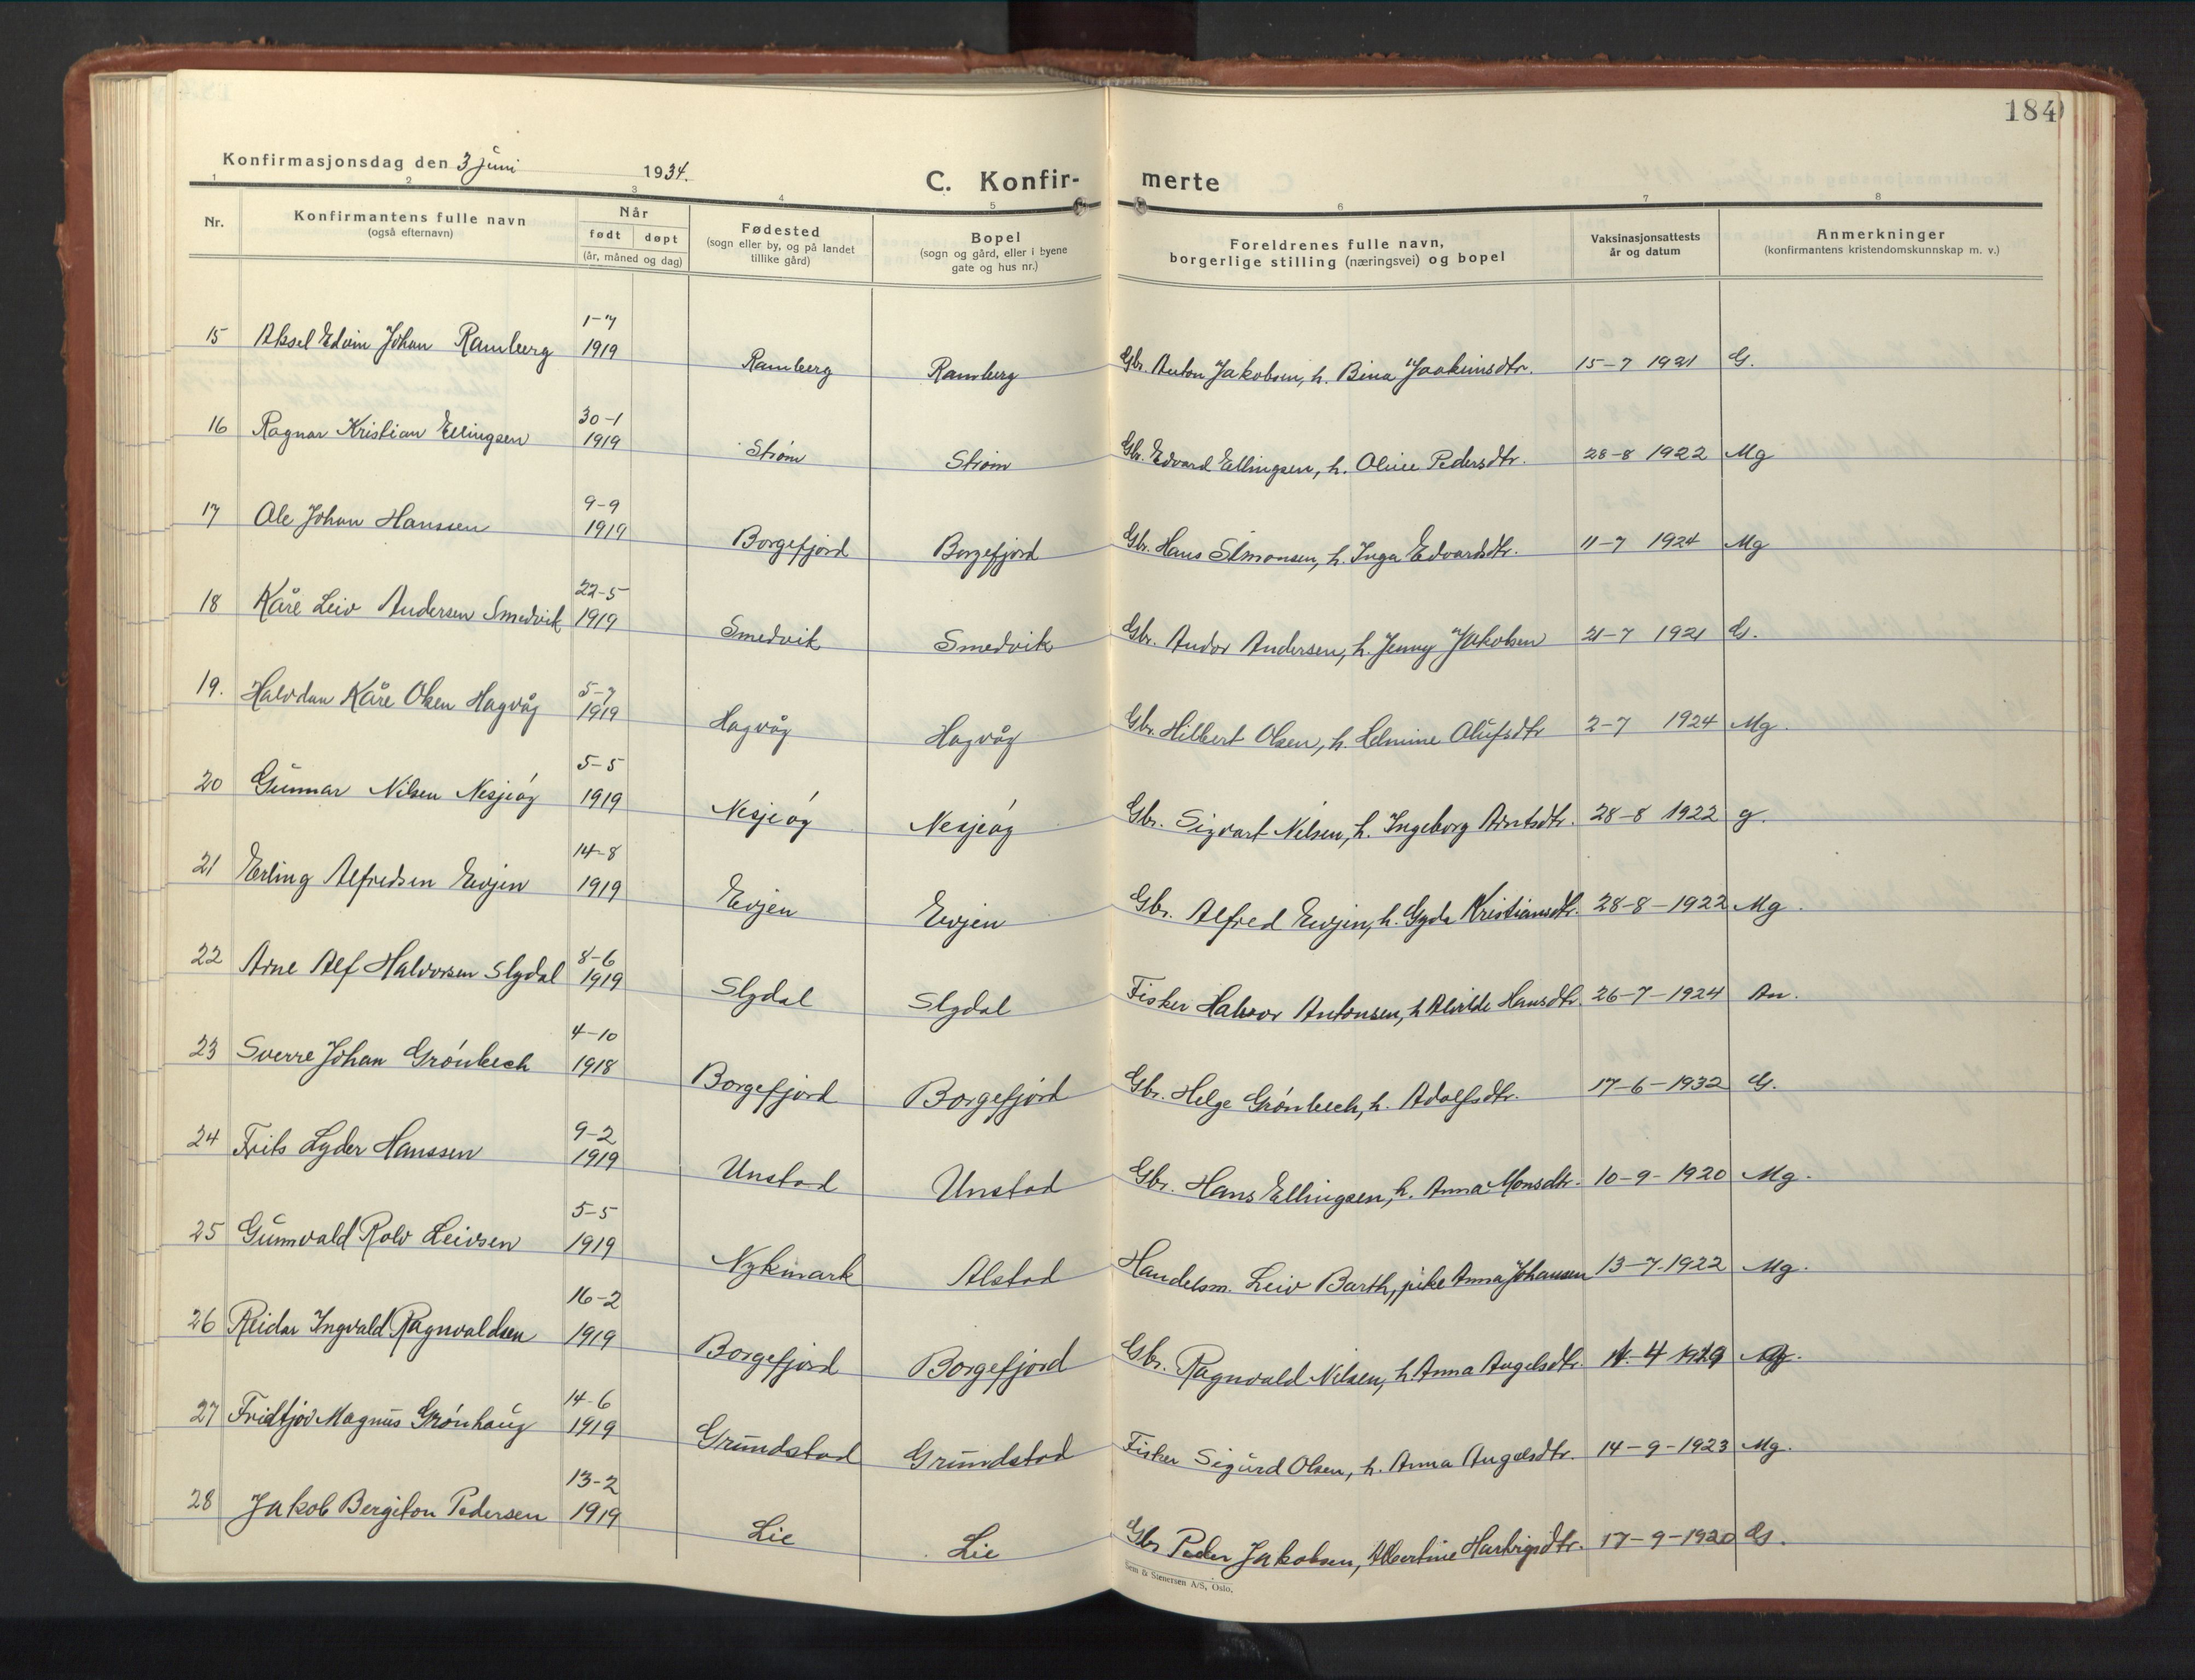 184
Konfirmasjonsdag den 3 juni 1934.
C. Konfir- merte
1 2 3 4 5 6 7 8
Nr.
Konfirmantens fulle navn
(også efternavn)
Når
født døpt
(år, måned og dag)
Fødested
(sogn eller by, og på landet
tillike gård)
Bopel
(sogn og gård, eller i byene
gate og hus nr.)
Foreldrenes fulle navn,
borgerlige stilling (næringsvei) og bopel
Vaksinasjonsattests
år og datum
Anmerkninger
(konfirmantens kristendomskunnskap m. v.)
15 Aksel Edvin Johan Ramberg 1-7 1919 Ramberg Ramberg Gbr. Anton Jakobsen, h. Bina Joakimsdtr. 15-7 1921 G.
16 Ragnar Kristian Ellingsen 30-1 1919 Strøm Strøm Gbr. Edvard Ellingsen, h. Oline Pedersdtr. 28-8 1922 Mg
17 Ole Johan Hanssen 9-9 1919 Borgefjord Borgefjord Gbr. Hans Simonsen, h. Inga Edvardsdtr. 11-7 1924 Mg
18 Kåre Leiv Andersen Smedvik 22-5 1919 Smedvik Smedvik Gbr. Andor Andersen, h. Jenny Jakobsen 21-7 1921 G.
19. Halvdan Kåre Olsen Hagvåg 5-7 1919 Hagvåg Hagvåg Gbr. Hilbert Olsen, h. Helmine Olufsdtr 2-7 1924 Mg.
20 Gunnar Nilsen Nesjeøy 5-5 1919 Nesjeøy Nesjeøy Gbr. Sigvart Nilsen, h. Ingeborg Arntsdtr. 28-8 1922 g.
21 Erling Alfredsen Evjen 14-8 1919 Evjen Evjen Gbr. Alfred Evjen, h. Gyda Kristiansdtr. 28-8-1922 Mg.
22 Arne Alf Halvorsen Slydal 8-6 1919 Slydal Slydal Fisker Halvor Antonsen, h Alvilde Hansdtr. 26-7-1924 An.
23 Sverre Johan Grønbech 4-10 1918 Borgefjord Borgefjord Gbr. Helge Grønbech, h. Adolfsdtr. 17-6-1932 G.
24 Frits Lyder Hanssen 9-2 1919 Unstad Unstad Gbr. Hans Ellingsen, h. Anna Monsdtr. 10-9-1920 Mg.
25 Gunnvald Rolv Leivsen 5-5 1919 Nykmark Alstad Handelsm. Leiv Barth, pike Anna Johansen 13-7-1922 Mg.
26 Reidar Ingvald Ragnvaldsen 16-2 1919 Borgefjord Borgefjord Gbr. Ragnvald Nilsen, h Anna Angelsdtr.
27 Fridtjov Magnus Grønhaug 14-6 1919 Grundstad Grundstad Fisker Sigurd Olsen, h. Anna Angelsdtr. 14-9-1923 Mg.
28 Jakob Bergiton Pedersen 13-2 1919 Lie Lie Gbr Peder Jakobsen, Albertine Hartvigsdtr. 17-9-1920 G.
Sem & Stenersen A/S, Oslo.